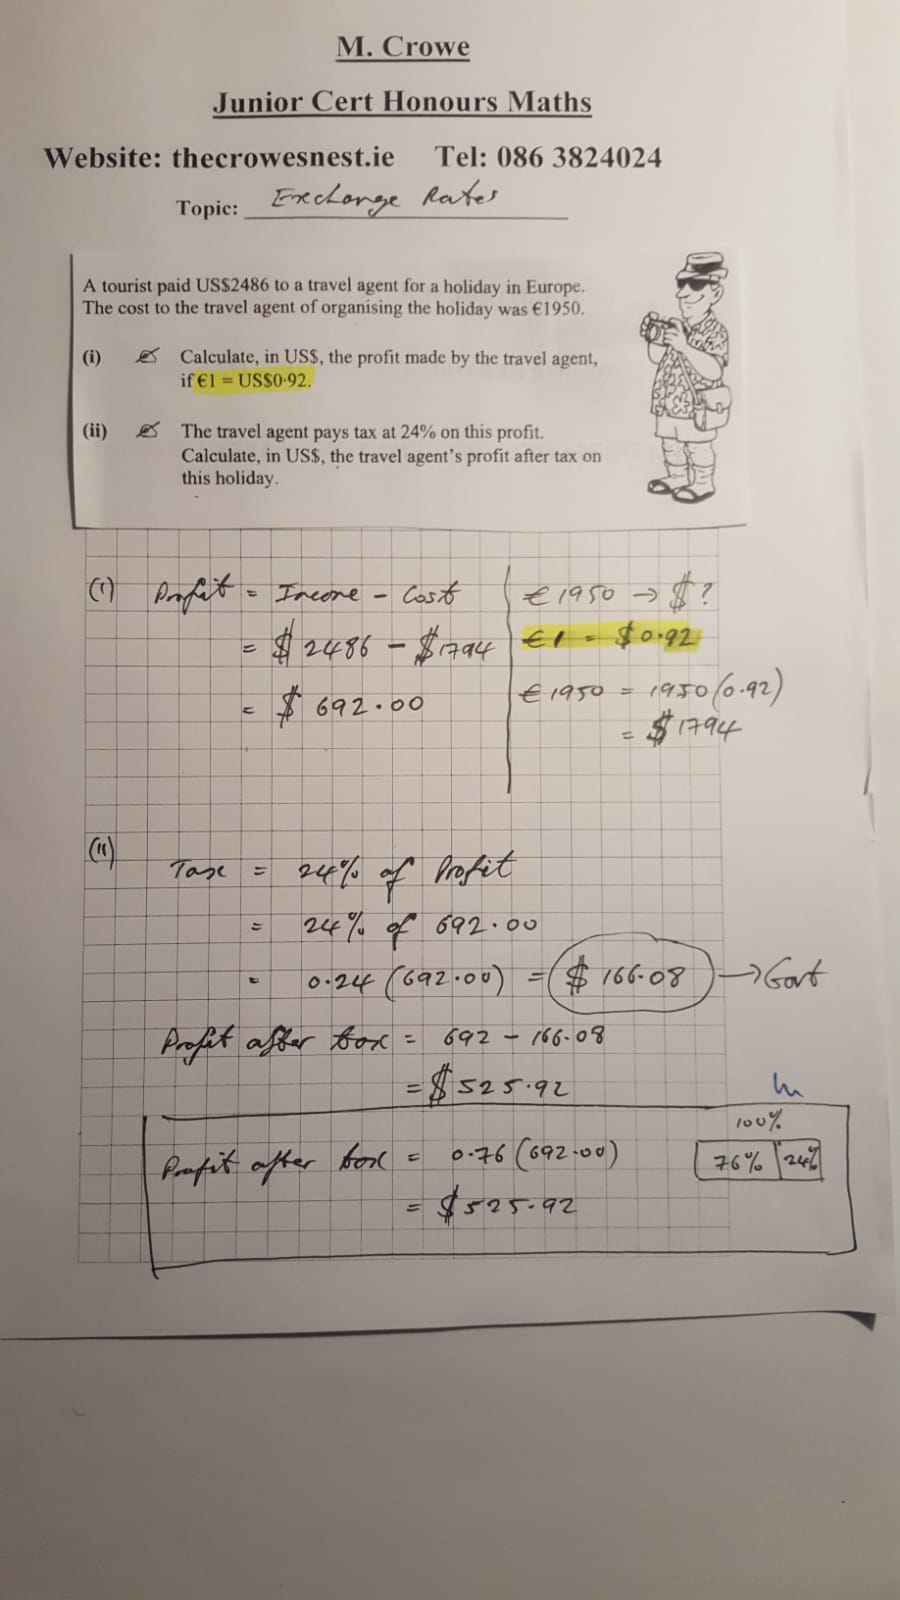 M. Crowe
Junior Cert Honours Maths
Website: thecrowesnest.ie Tel: 086 3824024
Topic: Exchange Rates
A tourist paid US$2486 to a travel agent for a holiday in Europe.
The cost to the travel agent of organising the holiday was €1950.
(i) Calculate, in US$, the profit made by the travel agent,
if €1 = US$0·92.
(ii) The travel agent pays tax at 24% on this profit.
Calculate, in US$, the travel agent's profit after tax on
this holiday.
(i) Profit = Income - Cost
= $ 2486 - $1794
= $ 692.00
€1950 → $?
€1 = $0.92
€1950 = 1950(0.92)
= $1794
(ii)
Tax = 24% of Profit
= 24% of 692.00
= 0.24 (692.00) = $ 166.08 → Govt
Profit after tax = 692 - 166.08
= $525.92
100%
Profit after tax = 0.76 (692.00) 76% 24%
= $525.92